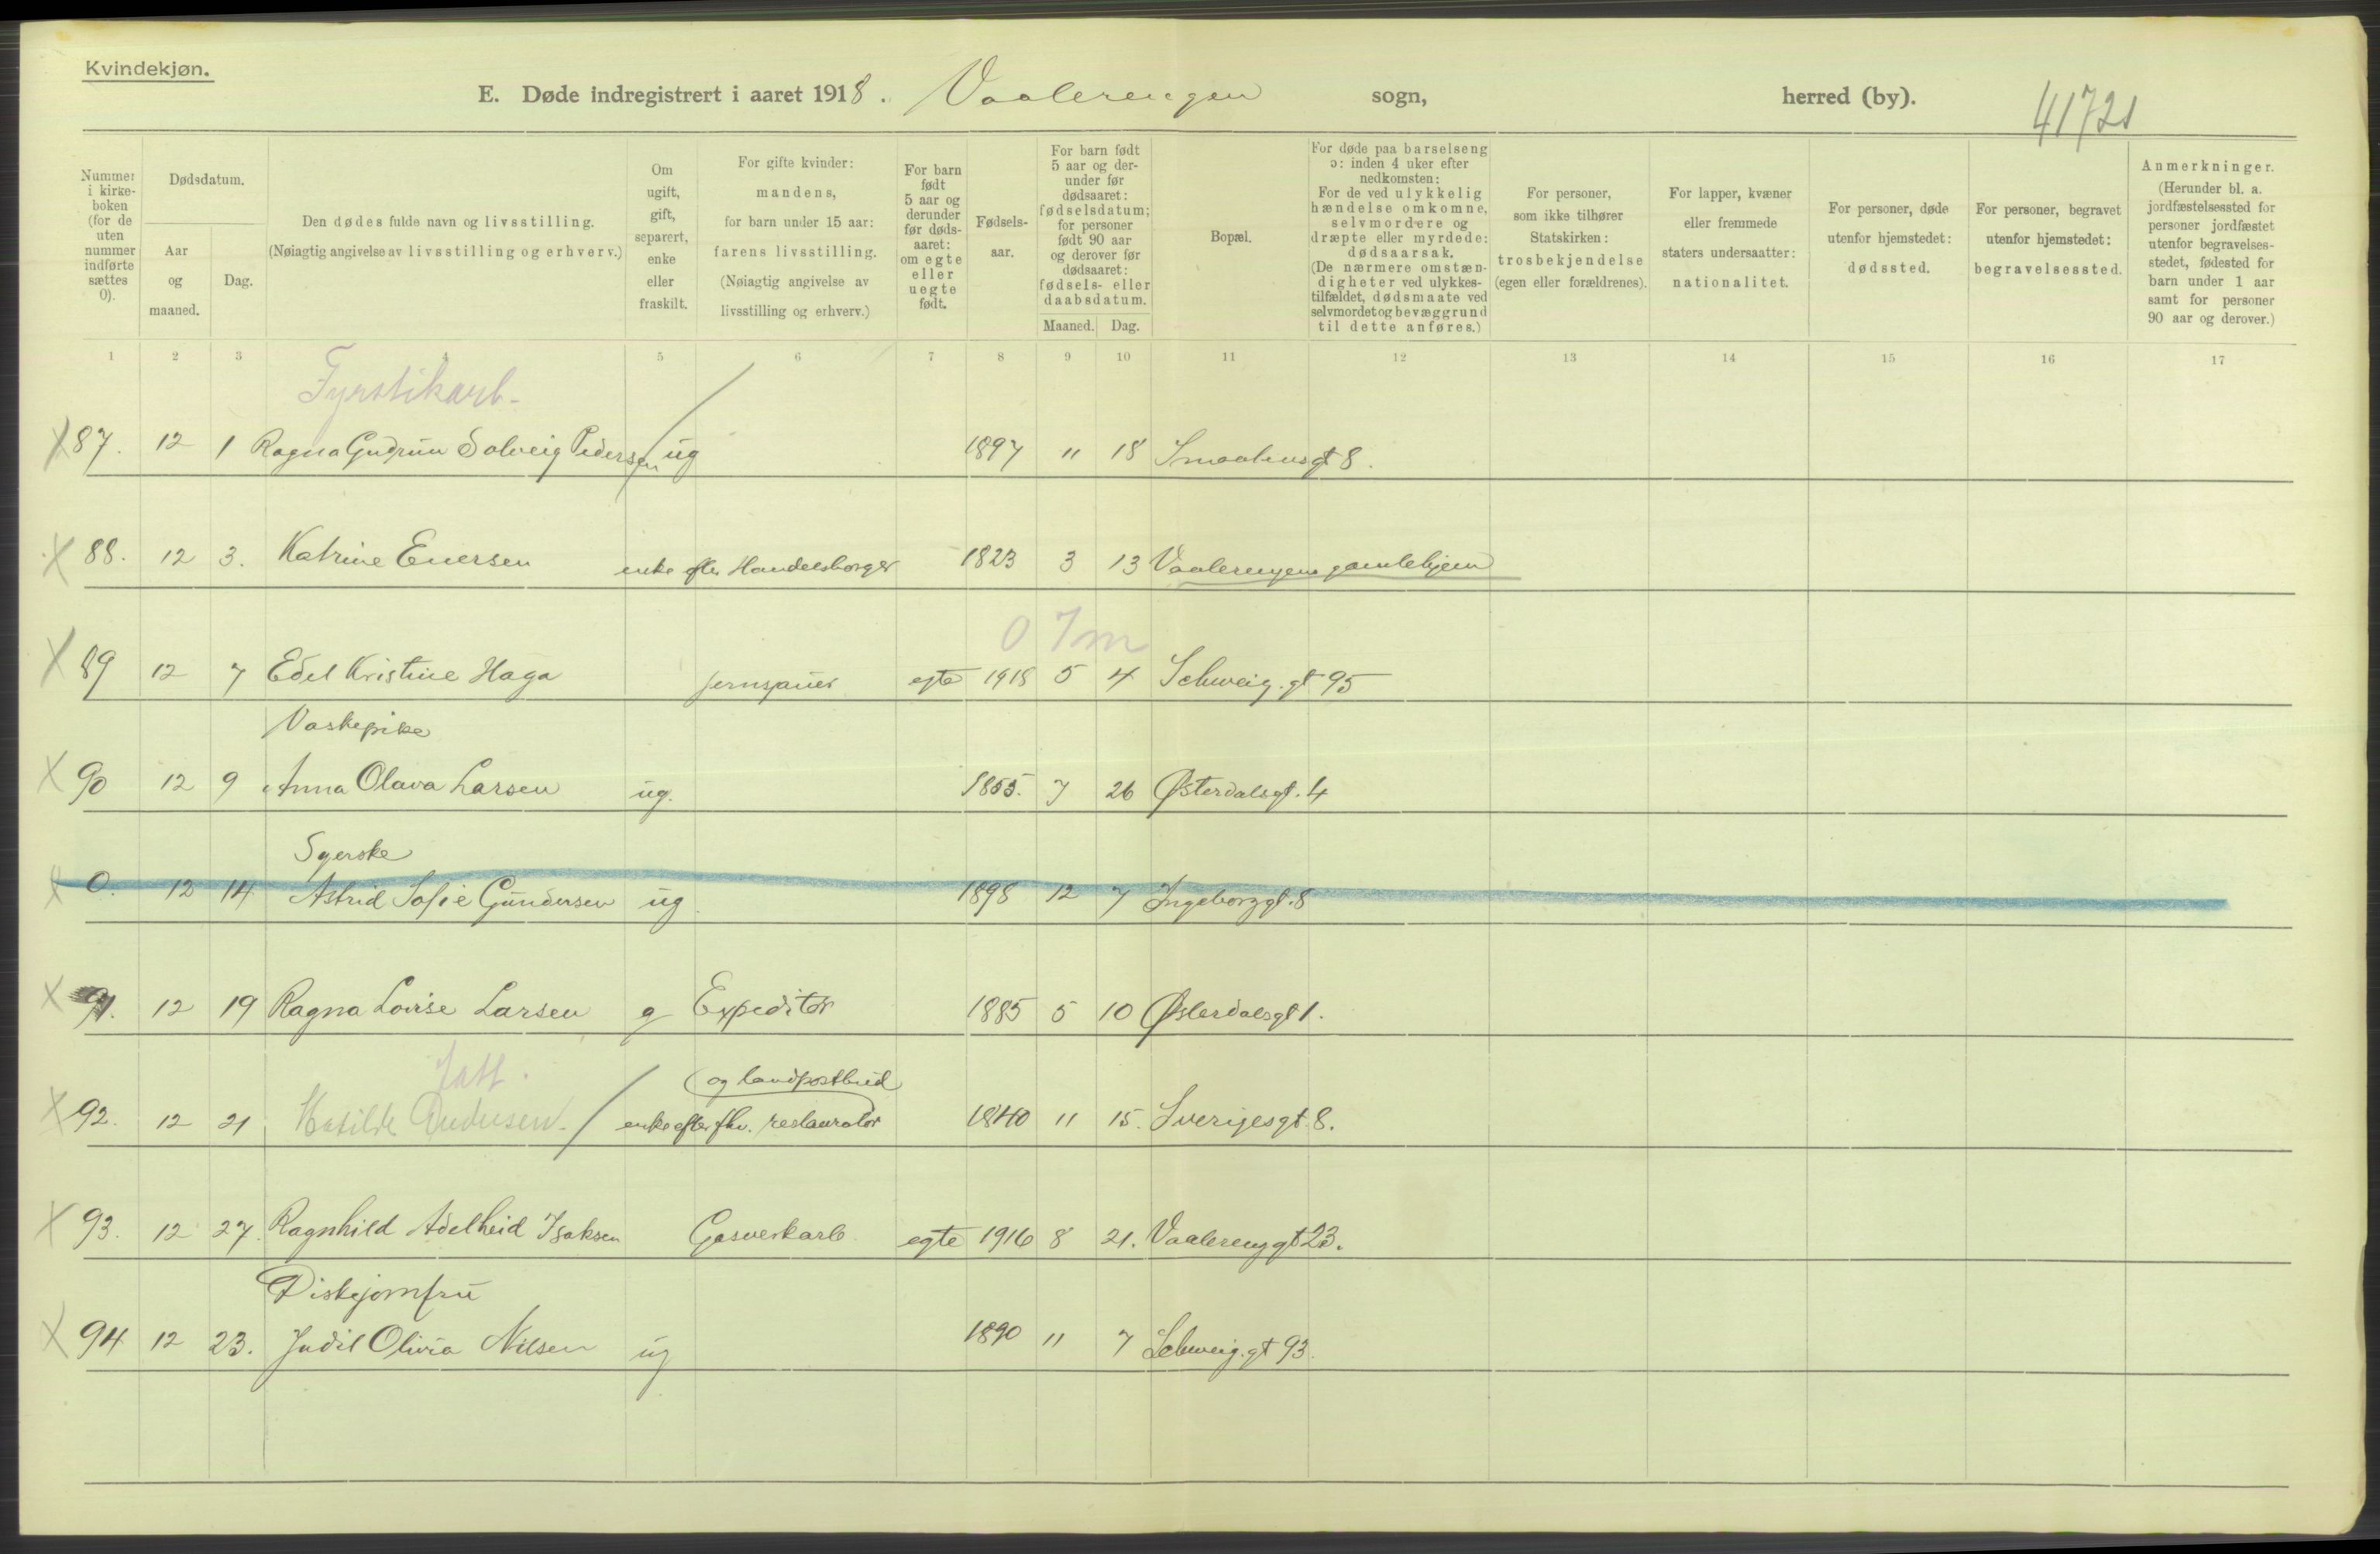 Kvindekjøn.
E. Døde indregistrert i aaret 1918. Vaalerengen sogn, herred (by).
41721
Nummer i kirkeboken (for de uten nummer indførte sættes 0).
Dødsdatum.
Aar og maaned.
Dag.
Den dødes fulde navn og livsstilling.
(Nøiagtig angivelse av livsstilling og erhverv.)
Om ugift, gift, separert, enke eller fraskilt.
For gifte kvinder: mandens, for barn under 15 aar: farens livsstilling. (Nøiagtig angivelse av livsstilling og erhverv.)
For barn født 5 aar og derunder før dødsaaret: om egte eller uegte født.
Fødselsaar.
For barn født 5 aar og derunder før dødsaaret: fødselsdatum; for personer født 90 aar og derover før dødsaaret: fødsels- eller daabsdatum.
Maaned. Dag.
Bopæl.
For døde paa barselseng ɔ: inden 4 uker efter nedkomsten: For de ved ulykkelig hændelse omkomne, selvmordere og dræpte eller myrdede: dødsaarsak. (De nærmere omstændigheter ved ulykkestilfældet, dødsmaate ved selvmordet og bevæggrund til dette anføres.)
For personer, som ikke tilhører Statskirken: trosbekjendelse (egen eller forældrenes).
For lapper, kvæner eller fremmede staters undersaatter: nationalitet.
For personer, døde utenfor hjemstedet: dødssted.
For personer, begravet utenfor hjemstedet: begravelsessted.
Anmerkninger. (Herunder bl. a. jordfæstelsessted for personer jordfæstet utenfor begravelsesstedet, fødested for barn under 1 aar samt for personer 90 aar og derover.)
1 2 3 4 5 6 7 8 9 10 11 12 13 14 15 16 17
Fyrstikarb.
X 87. 12 1 Ragna Gudrun Solveig Pedersen ug 1897 11 18 Smaalensgt 8.
X 88. 12 3. Katrine Enersen enke efter Handelsborger 1823 3 13 Vaalerengens gamlehjem
0 7 m
X 89 12 7 Edel Kristine Haga egte 1918 5 4 Schweig. gt 95
Vaskepike
X 90 12 9 Anna Olava Larsen ug. 1855. 7 26 Østerdalsgt. 4
Syerske
X 0. 12 14 Astrid Sofie Gundersen ug 1898 12 7 Ingeborggt. 8
X 91. 12 19 Ragna Lovise Larsen g Expeditør 1885 5 10 Østerdalsgt 1.
og landpostbud
X 92. 12 21 Matilde Andersen. enke efter fhv. restauratør 1840 11 15. Sverigesgt. 8.
X 93. 12 27. Ragnhild Adelheid Isaksen Gasverkarb egte 1916 8 21. Vaalerenggt 23.
Diskjomfru
X 94 12 23. Judit Olivia Nilsen ug 1890 11 7 Schweig. gt 93.